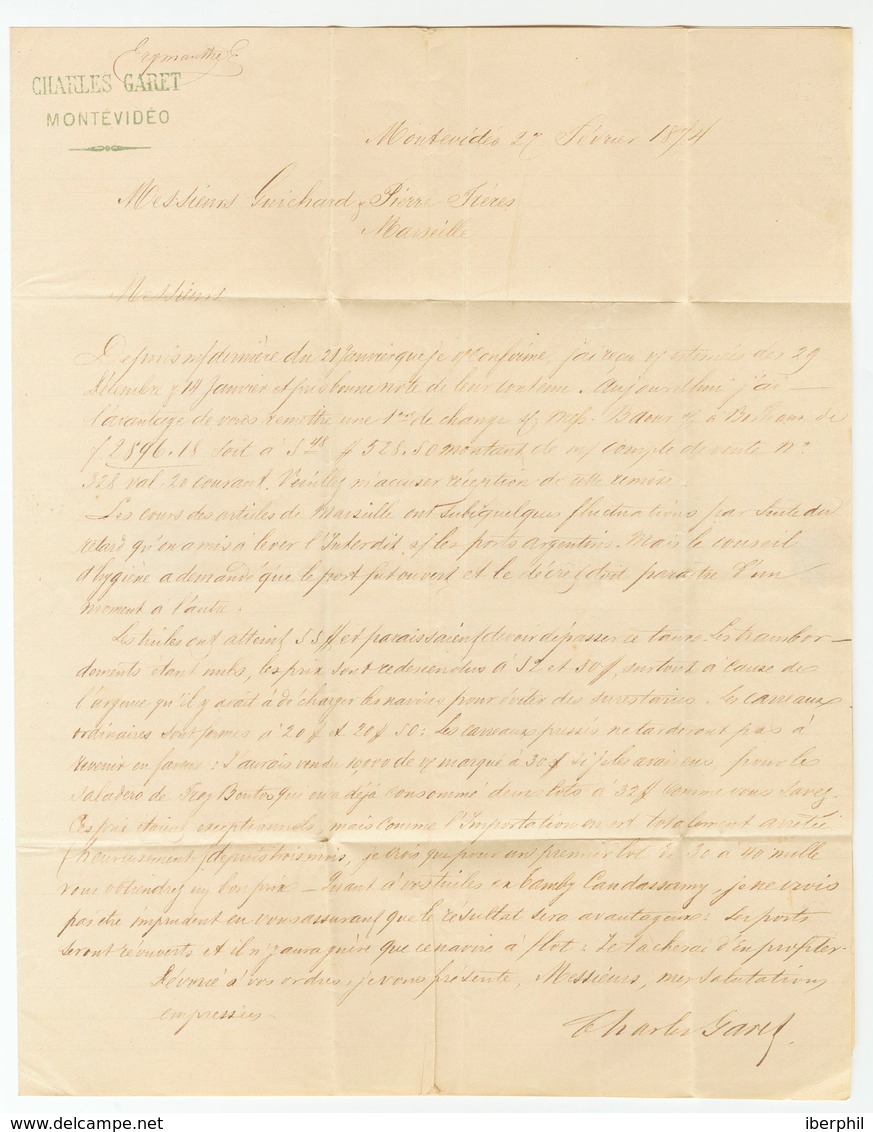 Erymanthe
CHARLES GARET
MONTÉVIDÉO
Montevidéo 27 Février 1874
Messieurs Guichard & Pierre Frères
Marseille
Messieurs
Depuis m/ dernière du 21 Janvier que je confirme, j'ai reçu v/ estimées des 29
Décembre & 14 Janvier et pris bonne note de leur contenu. Aujourd'hui j'ai
l'avantage de vous remettre une 1re de change s/ Mess. Baour à Bordeaux de
f. 2896.18 soit à 5 48 $ 528.50 montant de m/ compte de vente No
328 val. 20 courant. Veuillez m'accuser réception de cette remise.
Les cours des articles de Marseille ont subi quelques fluctuations par suite du
retard qu'on a mis à lever l'Interdit s/ les ports argentins. Mais le conseil
d'hygiène a demandé que le port fut ouvert et le décret doit paraitre d'un
moment à l'autre.
Les tuiles ont atteint 55 $ et paraissaient devoir dépasser ce taux. Les transbor-
dements étant nuls, les prix sont redescendus à 52 et 50 $, surtout à cause de
l'urgence qu'il y avait à décharger les navires pour éviter des surestaries. Les carreaux
ordinaires sont fermes à 20 $ et 20 $ 50: Les carreaux pressés ne tarderont pas à
revenir en faveur: J'aurais vendu 10,000 de v/ marque à 30 $ si je les avais eus, pour le
Saladero de Fray Bentos que on a déjà consommé deux lots à 32 $ comme vous savez.
Ces prix étaient exceptionnels, mais comme l'Importation en est totalement arrêtée
(heureusement) depuis trois mois, je crois que pour un premier lot de 30 à 40 mille
vous obtiendrez un bon prix - Quant à vos tuiles ex Tamby Candassamy, je ne crois
pas être imprudent en vous assurant que le résultat sera avantageux: Les ports
seront réouverts et il n'y aura guère que ce navire à flot: Je tacherai d'en profiter.
Dévoué à vos ordres, je vous présente, Messieurs, mes salutations
empressées.
Charles Garet
iberphil